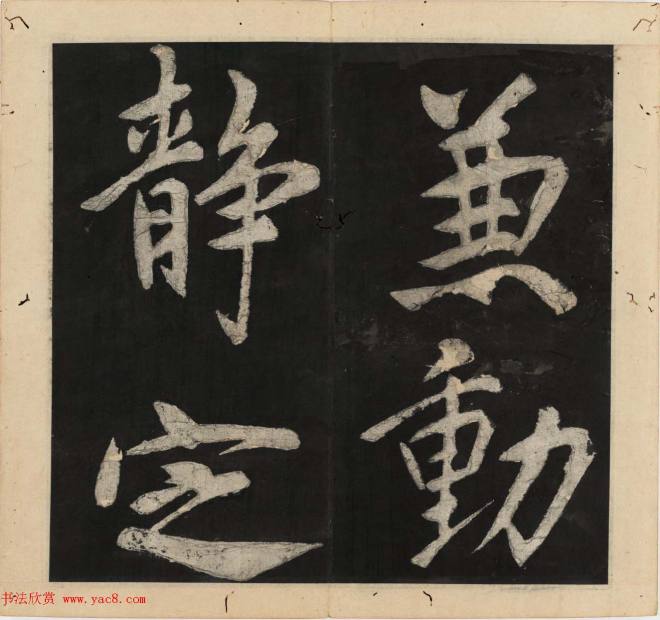 兼動
静定
书法欣赏 www.yac8.com